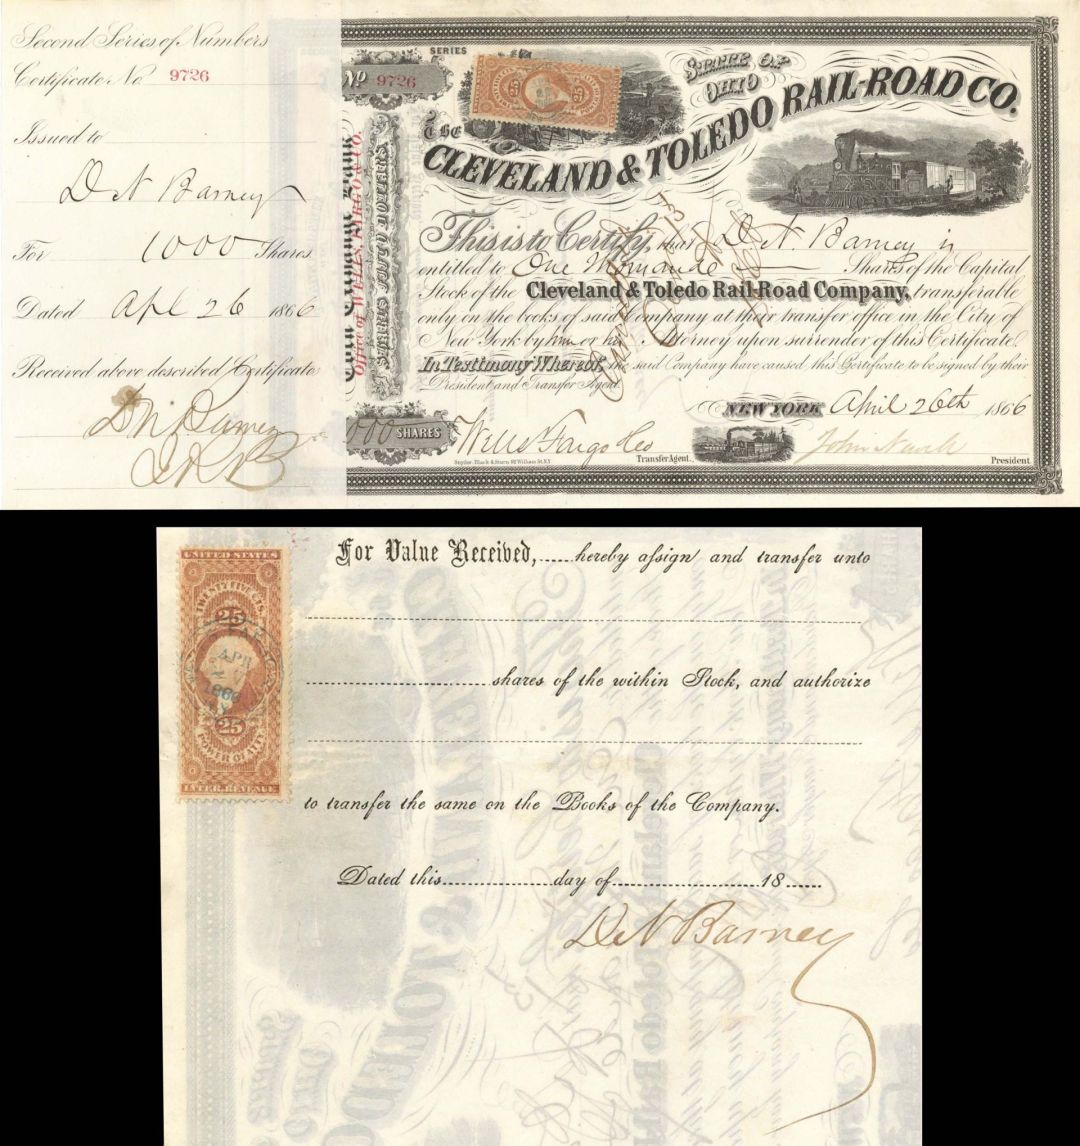 Second Series of Numbers
Certificate No 9726
Issued to
D N Barney
For 1000 Shares
Dated Apl 26 1866
Received above described Certificate
D N Barney
No 9726
SERIES
STATE OF
OHIO
The
CLEVELAND & TOLEDO RAIL-ROAD CO.
Office of WELLS, FARGO & CO.
SHARES FIFTY DOLLARS
This is to Certify, that D. N. Barney is
entitled to One Thousand Shares of the Capital
Stock of the Cleveland & Toledo Rail-Road Company, transferable
only on the books of said Company at their transfer office in the City of
New York by him or his Attorney upon surrender of this Certificate.
In Testimony Whereof, the said Company have caused this Certificate to be signed by their
President and Transfer Agent.
NEW YORK April 26th 1866
1000 SHARES
Wells Fargo & Co Transfer Agent.
President
UNITED STATES
TWENTY FIVE CTS.
25
APR
1866
25
POWER OF ATT'Y
INTER. REVENUE
For Value Received, ...... hereby assign and transfer unto
shares of the within Stock, and authorize
to transfer the same on the Books of the Company.
Dated this day of 18
D N Barney